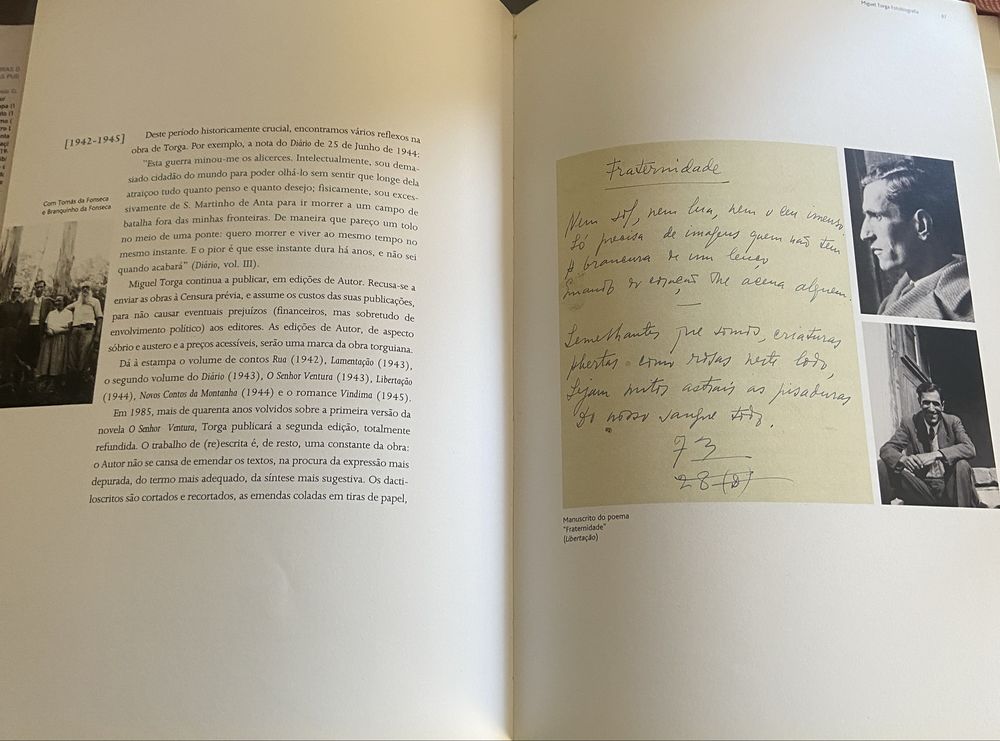 [1942-1945]
Com Tomás da Fonseca
e Branquinho da Fonseca
Deste período historicamente crucial, encontramos vários reflexos na
obra de Torga. Por exemplo, a nota do Diário de 25 de Junho de 1944:
"Esta guerra minou-me os alicerces. Intelectualmente, sou dema-
siado cidadão do mundo para poder olhá-lo sem sentir que longe dela
atraiçoo tudo quanto penso e quanto desejo; fisicamente, sou exces-
sivamente de S. Martinho de Anta para ir morrer a um campo de
batalha fora das minhas fronteiras. De maneira que pareço um tolo
no meio de uma ponte: quero morrer e viver ao mesmo tempo no
mesmo instante. E o pior é que esse instante dura há anos, e não sei
quando acabará" (Diário, vol. III).
Miguel Torga continua a publicar, em edições de Autor. Recusa-se a
enviar as obras à Censura prévia, e assume os custos das suas publicações,
para não causar eventuais prejuízos (financeiros, mas sobretudo de
envolvimento político) aos editores. As edições de Autor, de aspecto
sóbrio e austero e a preços acessíveis, serão uma marca da obra torguiana.
Dá à estampa o volume de contos Rua (1942), Lamentação (1943),
o segundo volume do Diário (1943), O Senhor Ventura (1943), Libertação
(1944), Novos Contos da Montanha (1944) e o romance Vindima (1945).
Em 1985, mais de quarenta anos volvidos sobre a primeira versão da
novela O Senhor Ventura, Torga publicará a segunda edição, totalmente
refundida. O trabalho de (re)escrita é, de resto, uma constante da obra:
o Autor não se cansa de emendar os textos, na procura da expressão mais
depurada, do termo mais adequado, da síntese mais sugestiva. Os dacti-
loscritos são cortados e recortados, as emendas coladas em tiras de papel,
Miguel Torga Fotobiografia 87
Fraternidade
Nem sol, nem lua, nem o céu imenso.
Só precisa de imagens quem não tem
A brancura de um lenço
Quando o coração lhe acena alguém.
Semelhantes que somos, criaturas
Abertas como rosas neste lodo,
Sejam mitos astrais as pisaduras
Do nosso sangue todo.
73
28 (8)
Manuscrito do poema
"Fraternidade"
(Libertação)